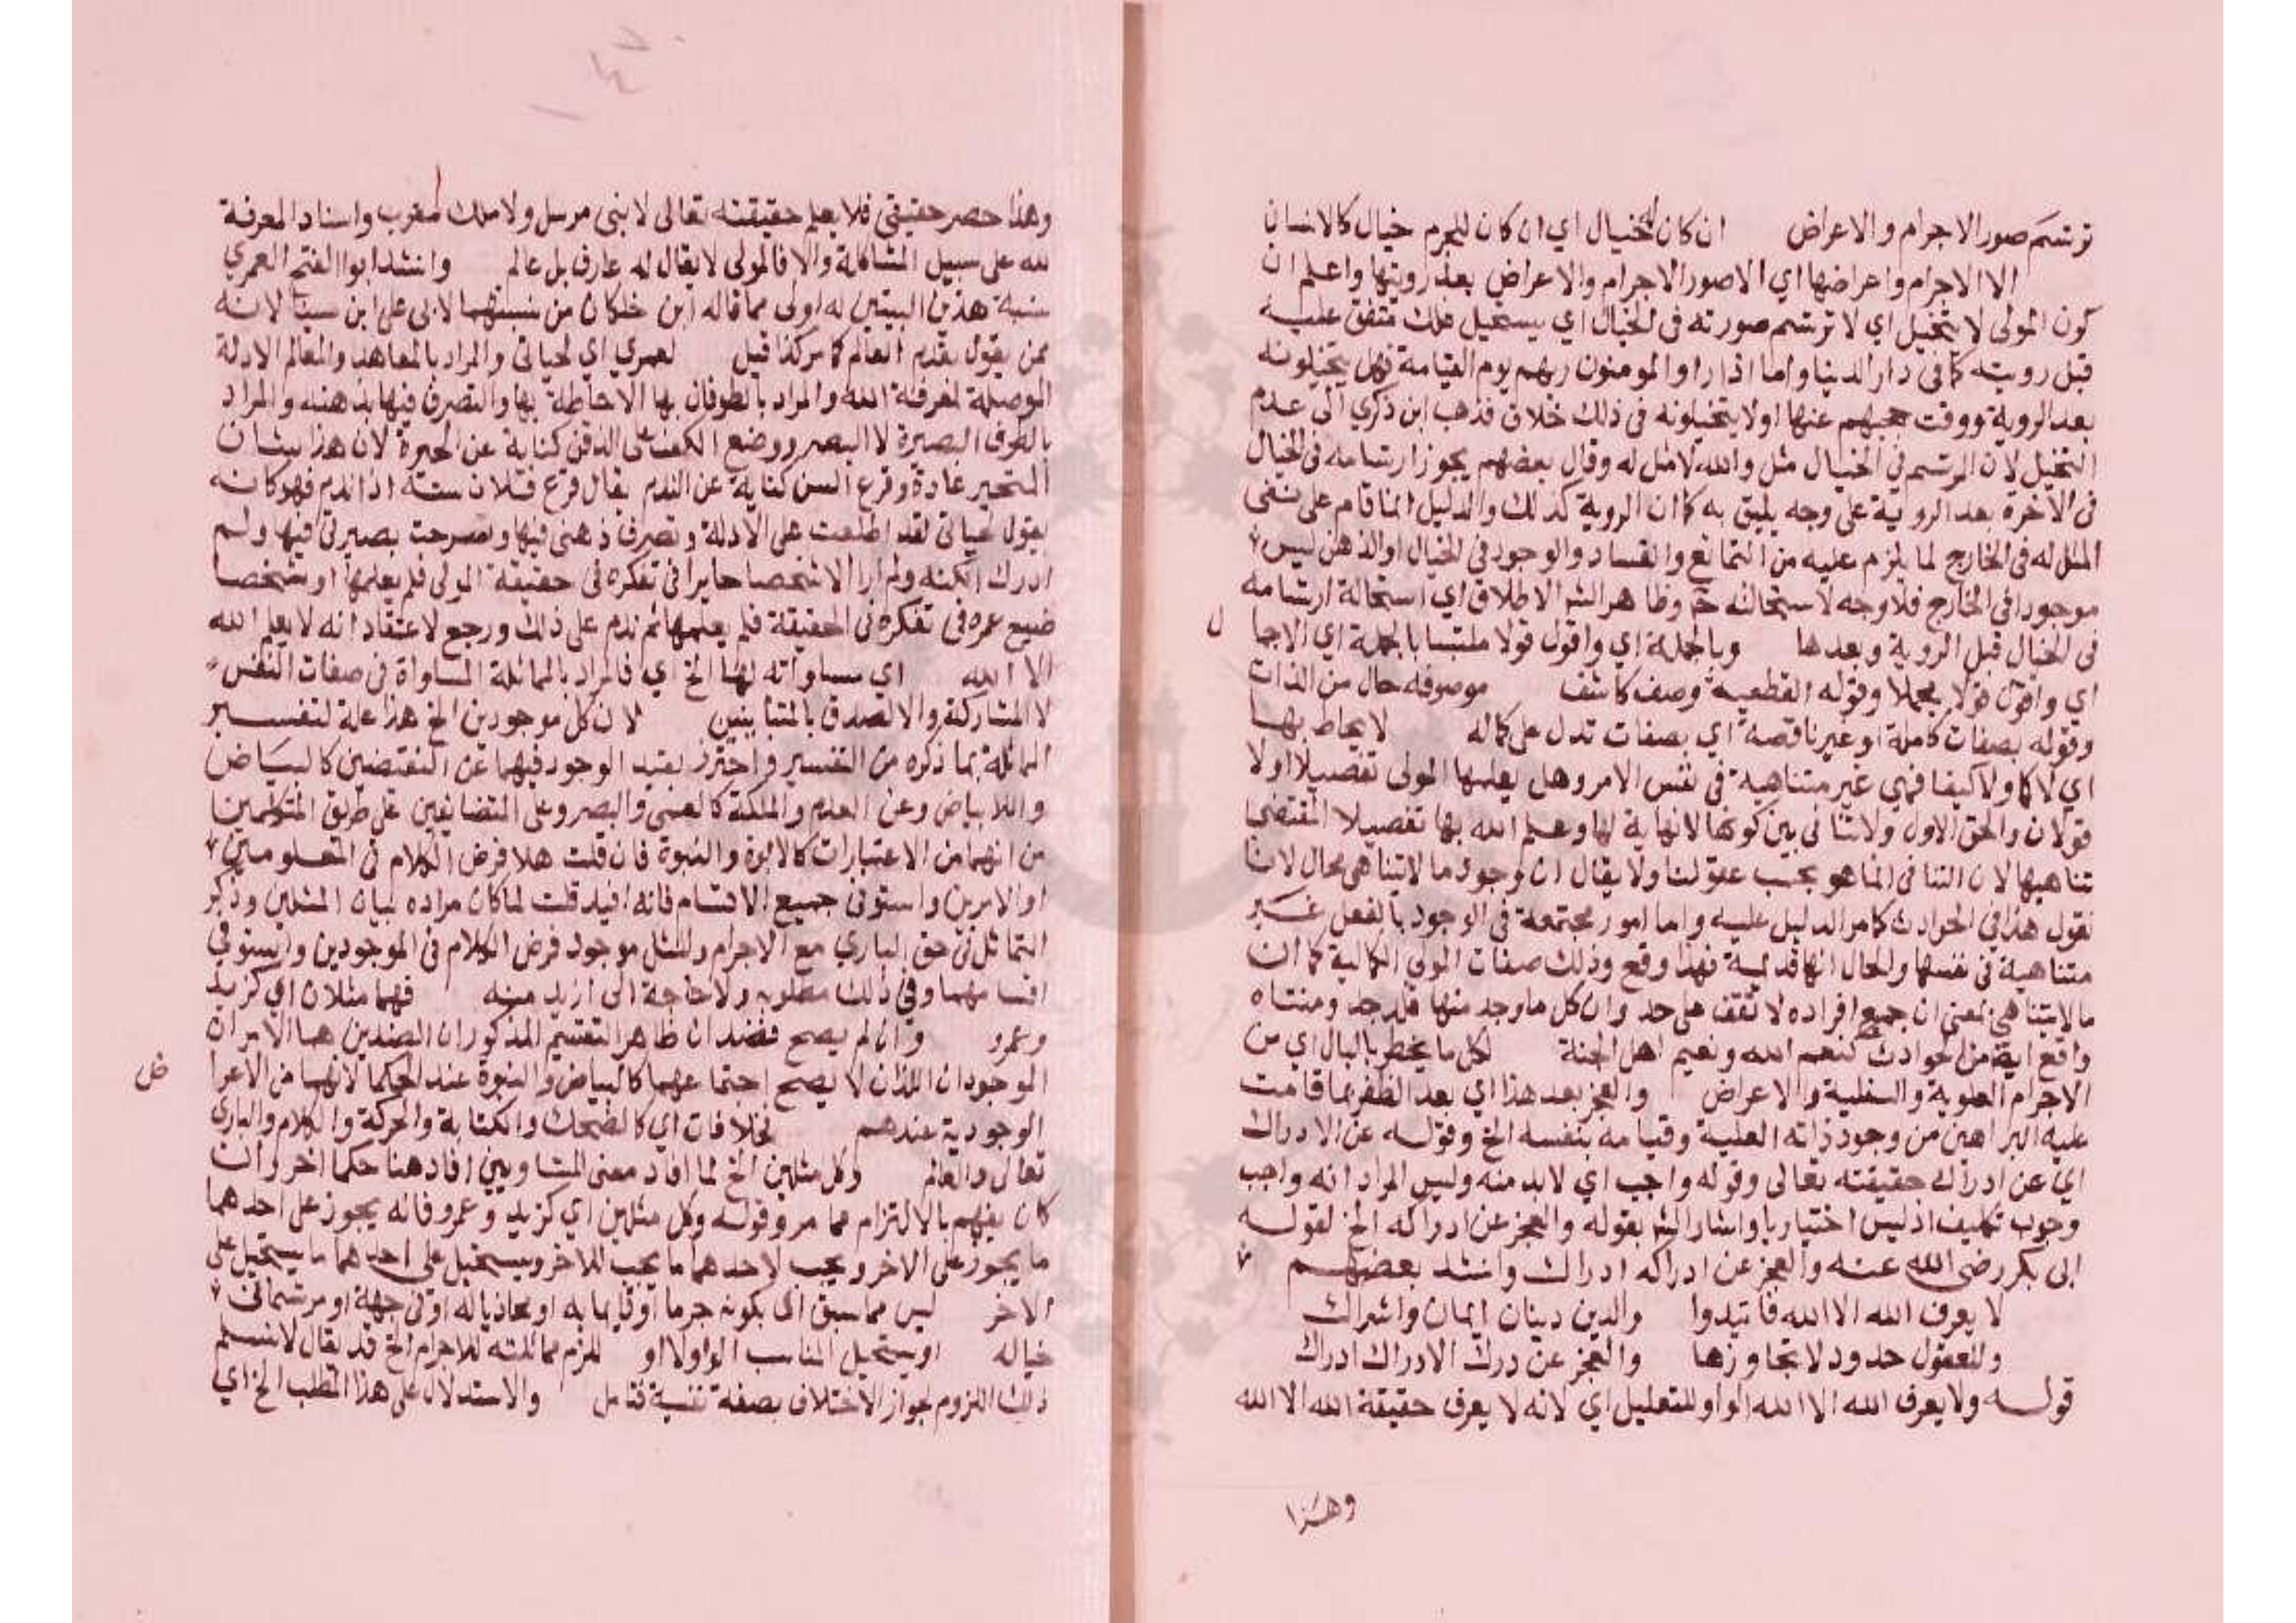 ترتسم صور الاجرام والاعراض ان كان له خيال اي ان كان للجرم خيال كالانسان
الا الاجرام واعراضها اي الاصور الاجرام والاعراض بعد رويتها واعلم ان
كون المولى لا يتخيل اي لا ترتسم صورته فى الخيال اي يستحيل ذلك متفق عليه
قبل رويته كما فى دار الدنيا واما اذا راوا المومنون ربهم يوم القيامة فهل يتخيلونه
بعد الروية ووقت حجبهم عنها او لا يتخيلونه فى ذلك خلاف فذهب ابن ذكري الى عدم
التخيل لان المرتسم فى الخيال مثل والله لا مثل له وقال بعضهم يجوز ارتسامه فى الخيال
فى الاخرة بعد الروية على وجه يليق به كما ان الروية كذلك والدليل انما قام على نفى
المثل له فى الخارج لما يلزم عليه من التمانع والفساد والوجود فى الخيال او الذهن ليس
موجودا فى الخارج فلا وجه لاستحالته ح وظاهر الش الاطلاق اي استحالة ارتسامه
فى الخيال قبل الروية وبعدها وبالجملة اي واقول قولا ملتبسا بالجملة اي الاجما ل
اي واقول قولا مجملا وقوله القطعية وصف كاشف موصوفه حال من الذات
وقوله بصفات كاملة او غير ناقصة اي بصفات تدل على كماله لا يحاط بها
اي لا كما ولا كيفا فهي غير متناهية فى نفس الامر وهل يعلمها المولى تفصيلا او لا
قولان والحق الاول ولا تنافى بين كونها لا نهاية لها وعلم الله بها تفصيلا المقتضى
تناهيها لان التنافى انما هو بحسب عقولنا ولا يقال ان وجود ما لا يتناهى محال لانا
نقول هذا فى الحوادث كما مر الدليل عليه واما امور مجتمعة فى الوجود بالفعل غير
متناهية فى نفسها والحال انها قديمة فهذا وقع وذلك صفات المولى الكمالية كما ان
ما لا يتناهى بمعنى ان جميع افراده لا تقف على حد وان كل ما وجد منها فله حد ومنتهاه
واقع ايضا من الحوادث كنعم الله ونعيم اهل الجنة لكل ما يخطر بالبال اي من
الاجرام العلوية والسفلية والاعراض والعجز بعد هذا اي بعد الظفر بما قامت
عليه البراهين من وجود ذاته العلية وقيامه بنفسه الخ وقوله عن الادراك
اي عن ادراك حقيقته تعالى وقوله واجب اي لا بد منه وليس المراد انه واجب
وجوب تكليف اذ ليس اختياريا واشار الش بقوله والعجز عن ادراكه الخ لقوله
ابى بكر رضى الله عنه والعجز عن ادراكه ادراك وانشد بعضهم
لا يعرف الله الا الله فاتيدوا والدين دينان ايمان واشراك
وللعقول حدود لا تجاوزها والعجز عن درك الادراك ادراك
قوله ولا يعرف الله الا الله الواو للتعليل اي لانه لا يعرف حقيقة الله الا الله
وهذا
وهذا حصر حقيقي فلا يعلم حقيقته تعالى لا نبى مرسل ولا ملك مقرب واسناد المعرفة
لله على سبيل المشاكلة والا فالمولى لا يقال له عارف بل عالم وانشد ابوا الفتح العمري
نسبة هذين البيتين له اولى مما قاله ابن خلكان من نسبتهما لابى على ابن سينا لانه
ممن يقول بقدم العالم كما مر كذا قيل لعمري اي لحياتى والمراد بالمعاهد والمعالم الادلة
الموصلة لمعرفة الله والمراد بالطوفان بها الاحاطة بها والتصرف فيها بذهنه والمراد
بالطرف البصيرة لا البصر ووضع الكف على الذقن كناية عن الحيرة لان هذا شان
المتحير عادة وقرع السن كناية عن الندم يقال قرع فلان سنه اذا ندم فهو كانه
يقول لحياتى لقد اطلعت على الادلة وتصرف ذهنى فيها وسرحت بصيرتى فيها ولم
ادرك الكنه ولم ار الا شخصا حايرا فى تفكره فى حقيقة المولى فلم يعلمها او شخصا
ضيع عمره فى تفكره فى الحقيقة فلم يعلمها ثم ندم على ذلك ورجع لاعتقاد انه لا يعلم الله
الا الله اي مساواته لها الخ اي فالمراد بالمماثلة المساواة فى صفات النفس
لا المشاركة والا لصدق بالمتباينين لان كل موجودين الخ هذا علة لتفسير
المماثلة بما ذكره من التفسير واحترز بقيد الوجود فيهما عن النقيضين كالبياض
واللا بياض وعن العدم والملكة كالعمى والبصر وعن المتضايفين على طريق المتكلمين
من انهما من الاعتبارات كالابوة والبنوة فان قلت هلا فرض الكلام فى المعلومين
او الامرين واستوفى جميع الاقسام فانه افيد قلت لما كان مراده بيان المثلين وذكر
التماثل فى حق الباري مع الاجرام والمثل موجود فرض الكلام فى الموجودين واستوفى
اقسامهما وفى ذلك مطلوبه ولا حاجة الى ازيد منه فهما مثلان اي كزيد
وعمرو وان لم يصح فضدان ظاهر التقسيم المذكور ان الضدين هما الامران
الموجودان اللذان لا يصح اجتماعهما كالبياض والبنوة عند الحكما لانهما من الاعرا ض
الوجودية عندهم فخلافان اي كالضحك والكتابة والحركة والكلام والبارى
تعالى والعالم وكل مثلين الخ لما افاد معنى المتساويين افاد هنا حكما اخر وان
كان يفهم بالالتزام مما مر وقوله وكل مثلين اي كزيد وعمرو فانه يجوز على احدهما
ما يجوز على الاخر ويجب لاحدهما ما يجب للاخر ويستحيل على احدهما ما يستحيل على
الاخر ليس مما سبق الى بكونه جرما او قايما به او محاذيا له او فى جهة او مرتسما فى
خياله او يستحيل المناسب الواو لا او للزم مماثلته للاجرام الخ قد يقال لا نسلم
ذلك اللزوم لجواز الاختلاف بصفة نفسية فتامل والاستدلال على هذا المطلب الخ اي